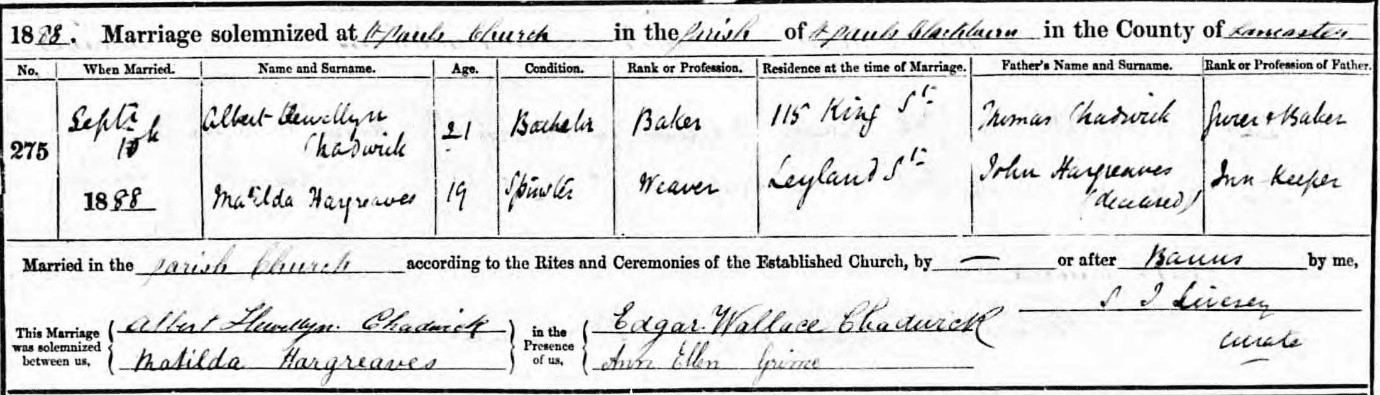 1888. Marriage solemnized at St Pauls Church in the Parish of St Pauls Blackburn in the County of Lancaster
No. When Married. Name and Surname. Age. Condition. Rank or Profession. Residence at the time of Marriage. Father's Name and Surname. Rank or Profession of Father.
275 Septr 10th 1888
Albert Llewellyn Chadwick 21 Bachelor Baker 115 King St Thomas Chadwick & Baker
Matilda Hargreaves 19 Spinster Weaver Leyland St John Hargreaves (deceased) Inn Keeper
Married in the parish Church according to the Rites and Ceremonies of the Established Church, by — or after Banns by me,
S J Livesey
curate
This Marriage was solemnized between us, Albert Llewellyn Chadwick in the Presence of us, Edgar Wallace Chadwick
Matilda Hargreaves Ann Ellen Grime